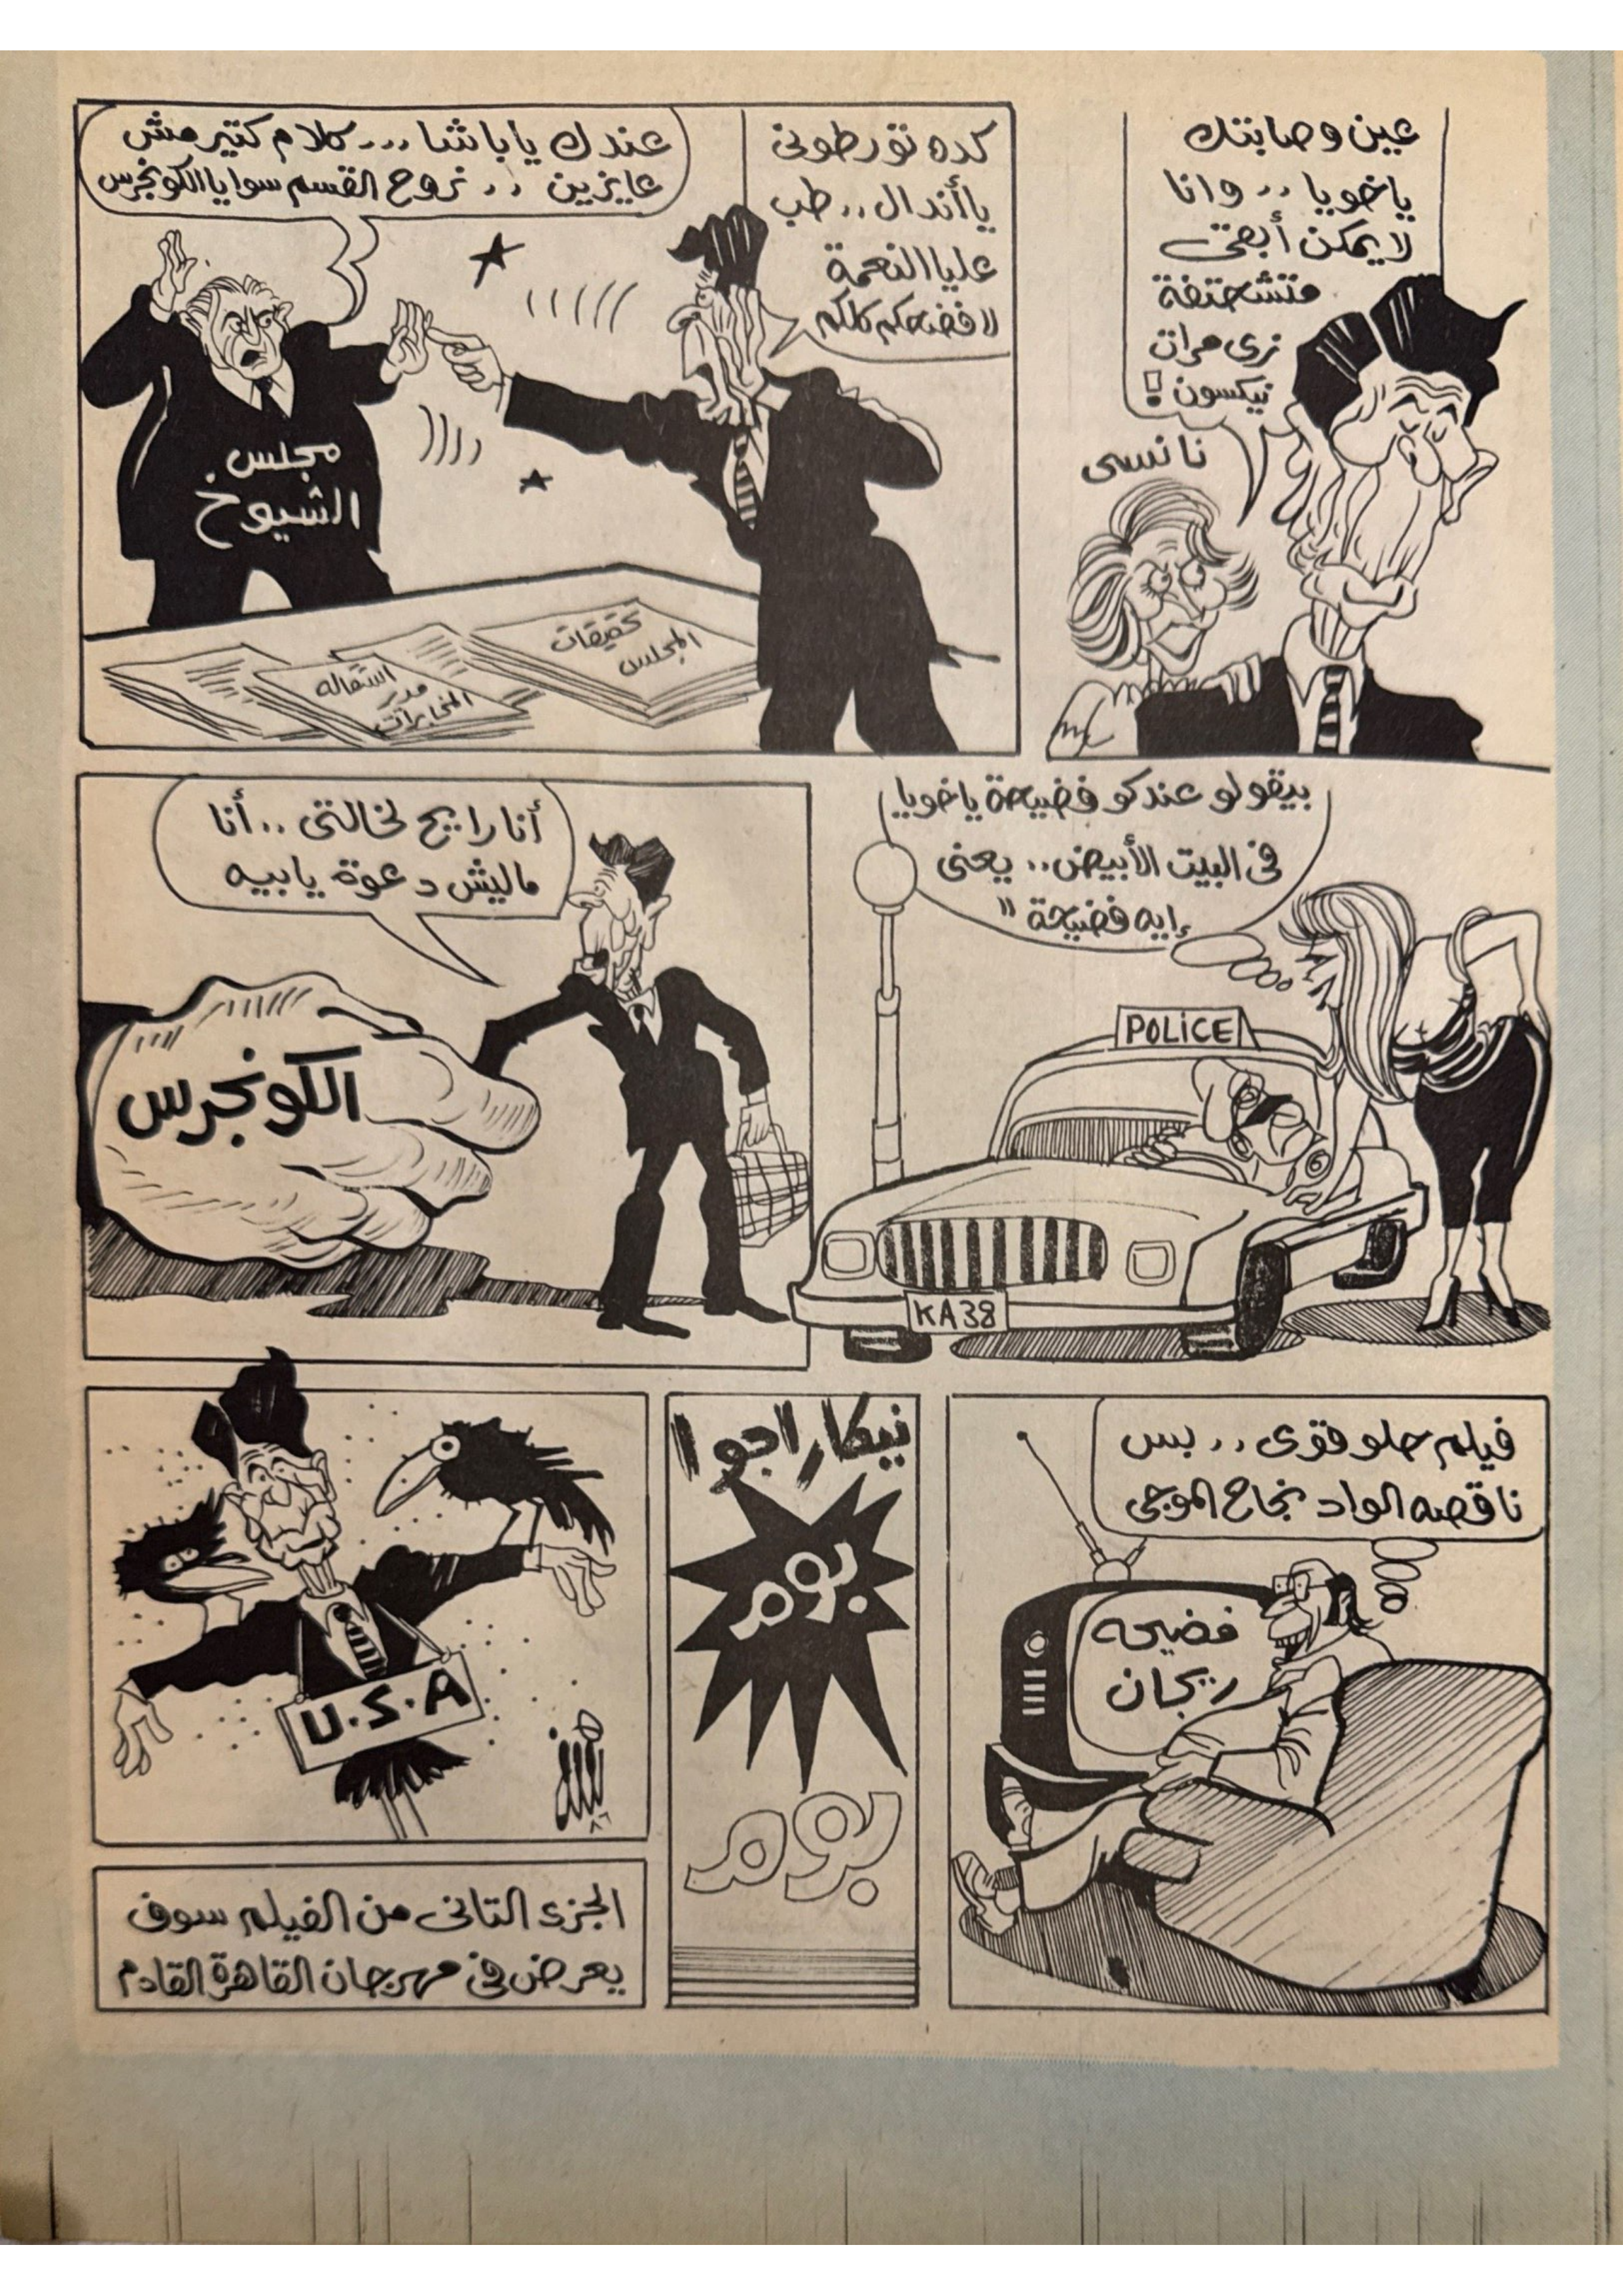 عين وصابتك
ياخويا .. وانا
لا يمكن أبقى
متشحتفة
زى مرات
نيكسون !
نانسى
كده تورطونى
يا أندال .. طب
عليا النعمة
لافضحكم كلكم
عندك يا باشا ... كلام كتير مش
عايزين .. نروح القسم سوا يا الكونجرس
مجلس
الشيوخ
تحقيقات
المجلس
استقالة
مدير
المخابرات
بيقولو عندكو فضيحة ياخويا
فى البيت الأبيض .. يعنى
إيه فضيحة "
POLICE
KA38
أنا رايح لخالتى .. أنا
ماليش دعوة يا بيه
الكونجرس
فيلم حلو قوى .. بس
ناقصه الواد نجاح الموجى
فضيحه
ريجان
نيكاراجوا
بوم
بوم
U.S.A
٨٦
الجزء التانى من الفيلم سوف
يعرض فى مهرجان القاهرة القادم